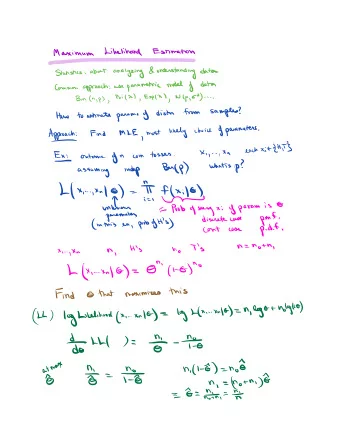 Maximum Likelihood Estimation
Statistics: about analyzing & understanding data
Common approach: use parametric model of data
Bin(n,p), Poi(λ), Exp(λ), N(μ,σ²)....
How to estimate params of distn from samples?
Approach: Find MLE, most likely choice of parameters.
Ex: outcome of n coin tosses. x₁,...,xₙ each xᵢ ∈ {H,T}
assuming indep Ber(p) what is p?
L(x₁,...,xₙ|θ) = ∏ᵢ₌₁ⁿ f(xᵢ|θ)
unknown parameters
(in this ex, prob of H's)
= Prob of seeing xᵢ if param is θ
discrete use p.m.f.
cont use p.d.f.
x₁,...,xₙ n₁ H's n₀ T's n=n₀+n₁
L(x₁...xₙ|θ) = θ^n₁ (1-θ)^n₀
Find θ that maximizes this
(LL) log Likelihood (x₁,...xₙ|θ) = log L(x₁...xₙ|θ) = n₁ log θ + n₀ log(1-θ)
d/dθ LL( ) = n₁/θ - n₀/(1-θ)
at max θ̂ n₁/θ̂ = n₀/(1-θ̂) n₁(1-θ̂) = n₀θ̂
n₁ = (n₀+n₁)θ̂
= θ̂ = n₁/(n₀+n₁) = n₁/n